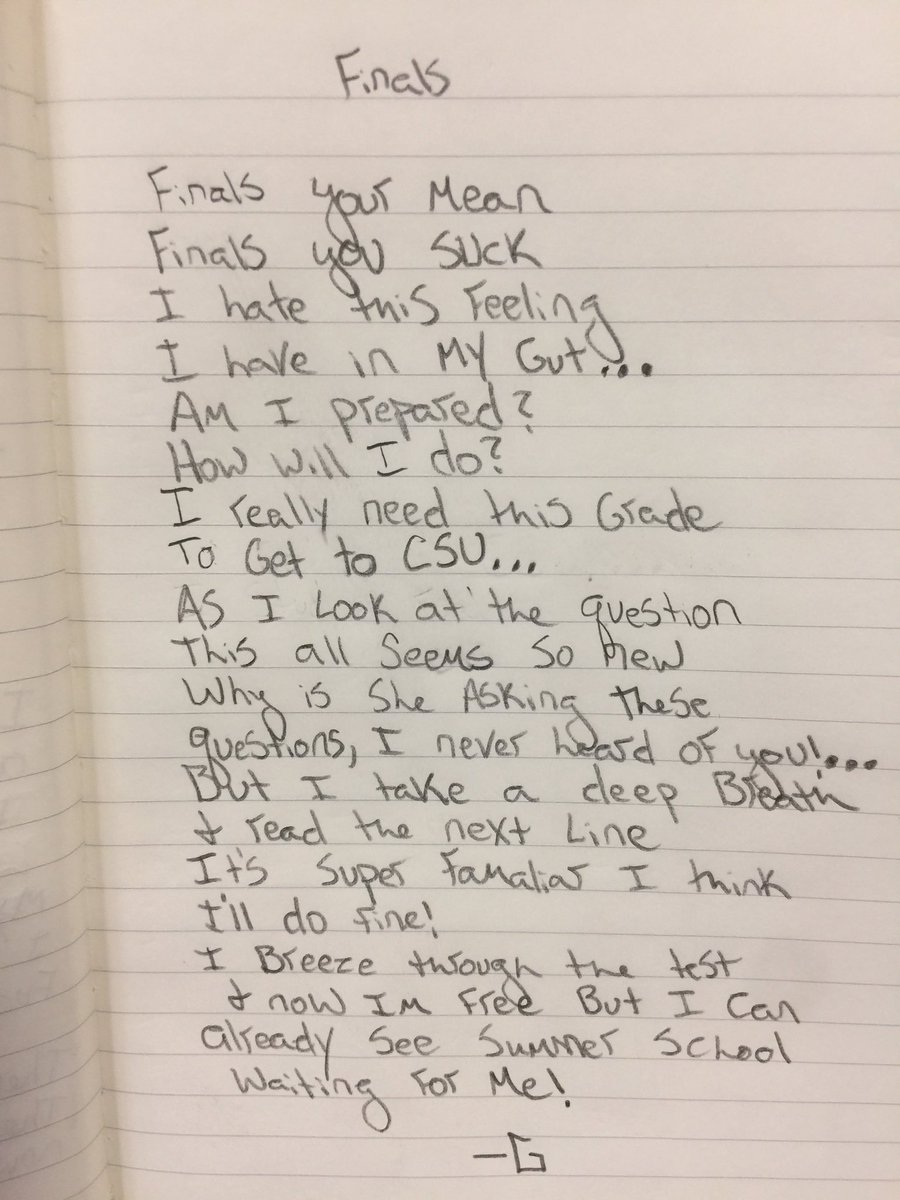 Finals
Finals your Mean
Finals you SUCK
I hate this Feeling
I have in MY Gut...
Am I prepared?
How will I do?
I really need this Grade
To Get to CSU...
AS I Look at the question
This all Seems So New
Why is She ASKing these
questions, I never heard of you!...
But I take a deep Breath
& read the next Line
It's Super Famaliar I think
I'll do fine!
I Breeze through the test
& now Im Free But I Can
already See Summer School
Waiting For Me!
-G